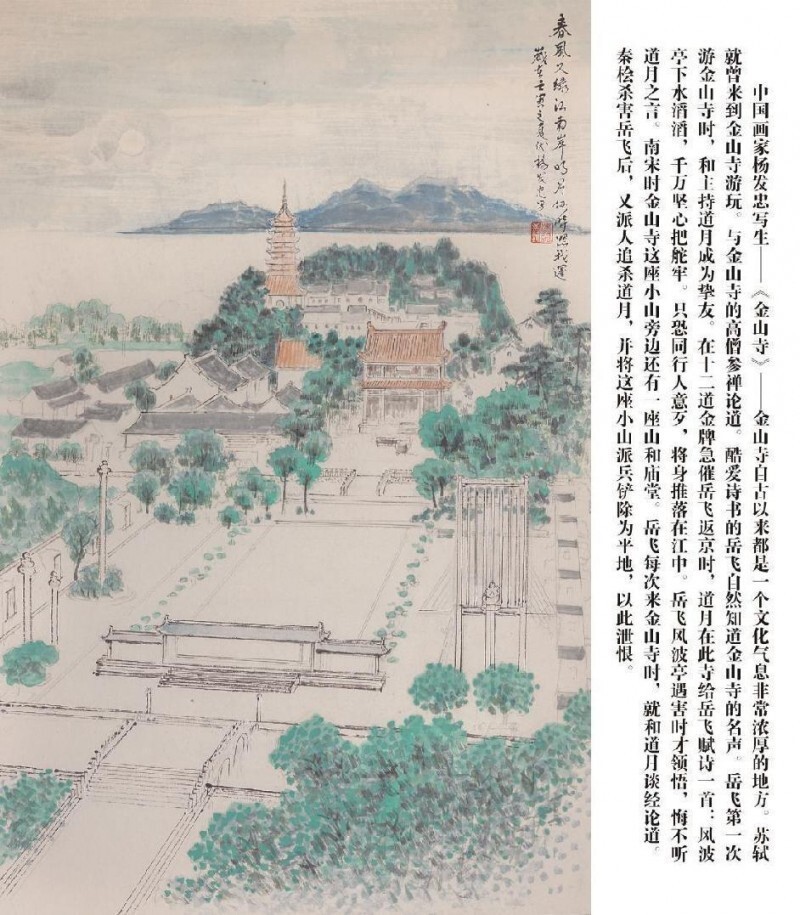 中国画家杨发忠写生——《金山寺》——金山寺自古以来都是一个文化气息非常浓厚的地方。苏轼
就曾来到金山寺游玩。与金山寺的高僧参禅论道。酷爱诗书的岳飞自然知道金山寺的名声。岳飞第一次
游金山寺时，和主持道月成为挚友。在十二道金牌急催岳飞返京时，道月在此寺给岳飞赋诗一首：风波
亭下水滔滔，千万坚心把舵牢。只恐同行人意歹，将身推落在江中。岳飞风波亭遇害时才领悟，悔不听
道月之言。南宋时金山寺这座小山旁边还有一座山和庙堂。岳飞每次来金山寺时，就和道月谈经论道。
秦桧杀害岳飞后，又派人追杀道月，并将这座小山派兵铲除为平地，以此泄恨。
春風又綠江南岸明月何時照我還
歲在壬寅之夏杨发忠写